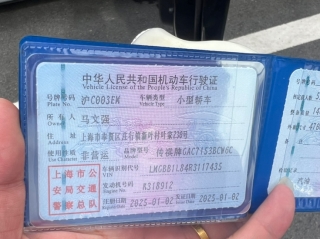 中华人民共和国机动车行驶证
Vehicle License of the People's Republic of China
号牌号码 沪C003EK 车辆类型 小型轿车
Plate No. Vehicle Type
所有人 马文强
Owner
住址 上海市奉贤区庄行镇新叶村叶家238号
使用性质 非营运 品牌型号 传祺牌GAC7153BCW6C
上海市公安局交通警察总队
车辆识别代号 LMGBB1L84R3117435
VIN
发动机号码 K318912
Engine No.
注册日期 2025-01-02 发证日期 2025-01-02